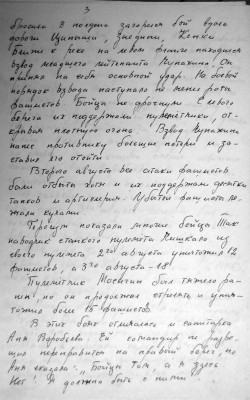 3
В полдень загорелся бой вдоль
дороги
Ближе к реке на левом фланге находился
взвод младшего лейтенанта Купажина. Он
принял на себя основной удар. На боевой
порядок взвода наступало не менее роты
фашистов. Бойцы не дрогнули. С левого
берега их поддержали пулеметчики, от-
крывая плотную огонь. Взвод Купажина
нанес противнику большие потери и за-
ставил его отойти
Второго августа все атаки фашистов
были отбиты хотя и их поддержали десятки
танков и артиллерия. Убитые фашисты ле-
жали кучами
Героизм показали многие бойцы. Так
наводчик станкого пулемета из
своего пулемета 2го августа уничтожил 12
фашистов, а 3го августа - 18.
Пулеметчик был тяжело ра-
нен, но он продолжал стрелять и унич-
тожил более 15 фашистов.
В этих боях отличилась и санитарка
Аня Воробьева. Ей командир не разре-
шил переправиться на правый берег, но
Аня сказала: „Бойцы там, а я здесь
Нет! Я должна быть с ними